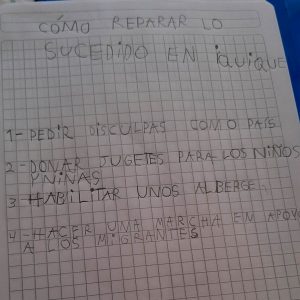 CÓMO REPARAR LO
SUCEDIDO EN iQUiQUE
1- PEDIR DISCULPAS COMO PAÍS
2- DONAR JUGETES PARA LOS NIÑOS
Y NIÑAS
3 HABILITAR UNOS ALBERGE
4- HACER UNA MARCHA EM APOYO
A LOS MIGRANTES